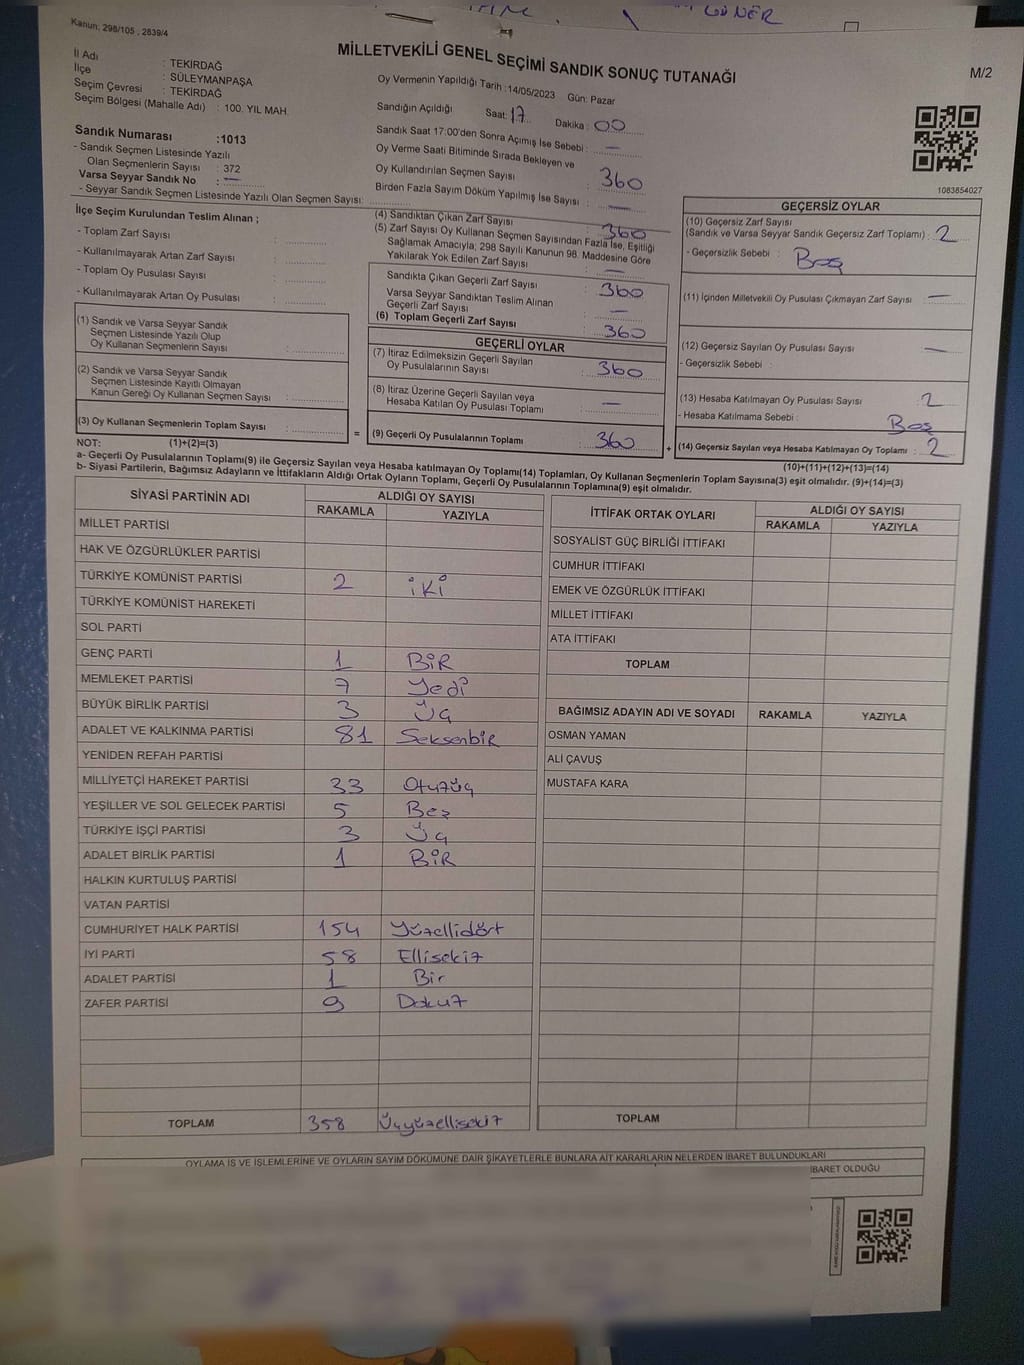 GÜNER
Kanun; 298/105 , 2839/4
MİLLETVEKİLİ GENEL SEÇİMİ SANDIK SONUÇ TUTANAĞI
M/2
İl Adı : TEKİRDAĞ
İlçe : SÜLEYMANPAŞA
Seçim Çevresi : TEKİRDAĞ
Seçim Bölgesi (Mahalle Adı) : 100. YIL MAH.
Oy Vermenin Yapıldığı Tarih :14/05/2023 Gün: Pazar
Sandığın Açıldığı Saat: 17 Dakika : 00
Sandık Saat 17:00'den Sonra Açımış İse Sebebi : —
Oy Verme Saati Bitiminde Sırada Bekleyen ve
Oy Kullandırılan Seçmen Sayısı : 360
Birden Fazla Sayım Döküm Yapılmış İse Sayısı : —
Sandık Numarası :1013
- Sandık Seçmen Listesinde Yazılı
Olan Seçmenlerin Sayısı : 372
Varsa Seyyar Sandık No : —
- Seyyar Sandık Seçmen Listesinde Yazılı Olan Seçmen Sayısı:
1083854027
İlçe Seçim Kurulundan Teslim Alınan ;
- Toplam Zarf Sayısı :
- Kullanılmayarak Artan Zarf Sayısı :
- Toplam Oy Pusulası Sayısı :
- Kullanılmayarak Artan Oy Pusulası :
(1) Sandık ve Varsa Seyyar Sandık
Seçmen Listesinde Yazılı Olup
Oy Kullanan Seçmenlerin Sayısı :
(2) Sandık ve Varsa Seyyar Sandık
Seçmen Listesinde Kayıtlı Olmayan
Kanun Gereği Oy Kullanan Seçmen Sayısı :
(3) Oy Kullanan Seçmenlerin Toplam Sayısı :
(4) Sandıktan Çıkan Zarf Sayısı : 360
(5) Zarf Sayısı Oy Kullanan Seçmen Sayısından Fazla İse, Eşitliği
Sağlamak Amacıyla; 298 Sayılı Kanunun 98. Maddesine Göre
Yakılarak Yok Edilen Zarf Sayısı : —
Sandıkta Çıkan Geçerli Zarf Sayısı : 360
Varsa Seyyar Sandıktan Teslim Alınan
Geçerli Zarf Sayısı : —
(6) Toplam Geçerli Zarf Sayısı : 360
GEÇERLİ OYLAR
(7) İtiraz Edilmeksizin Geçerli Sayılan
Oy Pusulalarının Sayısı : 360
(8) İtiraz Üzerine Geçerli Sayılan veya
Hesaba Katılan Oy Pusulası Toplamı : —
= (9) Geçerli Oy Pusulalarının Toplamı : 360
GEÇERSİZ OYLAR
(10) Geçersiz Zarf Sayısı
(Sandık ve Varsa Seyyar Sandık Geçersiz Zarf Toplamı) : 2
- Geçersizlik Sebebi : Boş
(11) İçinden Milletvekili Oy Pusulası Çıkmayan Zarf Sayısı : —
(12) Geçersiz Sayılan Oy Pusulası Sayısı : —
- Geçersizlik Sebebi :
(13) Hesaba Katılmayan Oy Pusulası Sayısı : 2
- Hesaba Katılmama Sebebi : Boş
+ (14) Geçersiz Sayılan veya Hesaba Katılmayan Oy Toplamı : 2
NOT: (1)+(2)=(3)
(10)+(11)+(12)+(13)=(14)
a- Geçerli Oy Pusulalarının Toplamı(9) ile Geçersiz Sayılan veya Hesaba katılmayan Oy Toplamı(14) Toplamları, Oy Kullanan Seçmenlerin Toplam Sayısına(3) eşit olmalıdır. (9)+(14)=(3)
b- Siyasi Partilerin, Bağımsız Adayların ve İttifakların Aldığı Ortak Oyların Toplamı, Geçerli Oy Pusulalarının Toplamına(9) eşit olmalıdır.
SİYASİ PARTİNİN ADI ALDIĞI OY SAYISI
RAKAMLA YAZIYLA
MİLLET PARTİSİ
HAK VE ÖZGÜRLÜKLER PARTİSİ
TÜRKİYE KOMÜNİST PARTİSİ 2 iki
TÜRKİYE KOMÜNİST HAREKETİ
SOL PARTİ
GENÇ PARTİ 1 BİR
MEMLEKET PARTİSİ 7 Yedi
BÜYÜK BİRLİK PARTİSİ 3 Üç
ADALET VE KALKINMA PARTİSİ 81 Seksenbir
YENİDEN REFAH PARTİSİ
MİLLİYETÇİ HAREKET PARTİSİ 33 Otuzüç
YEŞİLLER VE SOL GELECEK PARTİSİ 5 Beş
TÜRKİYE İŞÇİ PARTİSİ 3 Üç
ADALET BİRLİK PARTİSİ 1 BİR
HALKIN KURTULUŞ PARTİSİ
VATAN PARTİSİ
CUMHURİYET HALK PARTİSİ 154 Yüzellidört
İYİ PARTİ 58 Ellisekiz
ADALET PARTİSİ 1 Bir
ZAFER PARTİSİ 9 Dokuz
TOPLAM 358 Üçyüzellisekiz
İTTİFAK ORTAK OYLARI ALDIĞI OY SAYISI
RAKAMLA YAZIYLA
SOSYALİST GÜÇ BİRLİĞİ İTTİFAKI
CUMHUR İTTİFAKI
EMEK VE ÖZGÜRLÜK İTTİFAKI
MİLLET İTTİFAKI
ATA İTTİFAKI
TOPLAM
BAĞIMSIZ ADAYIN ADI VE SOYADI RAKAMLA YAZIYLA
OSMAN YAMAN
ALİ ÇAVUŞ
MUSTAFA KARA
TOPLAM
OYLAMA İŞ VE İŞLEMLERİNE VE OYLARIN SAYIM DÖKÜMÜNE DAİR ŞİKAYETLERLE BUNLARA AİT KARARLARIN NELERDEN İBARET BULUNDUKLARI
İBARET OLDUĞU